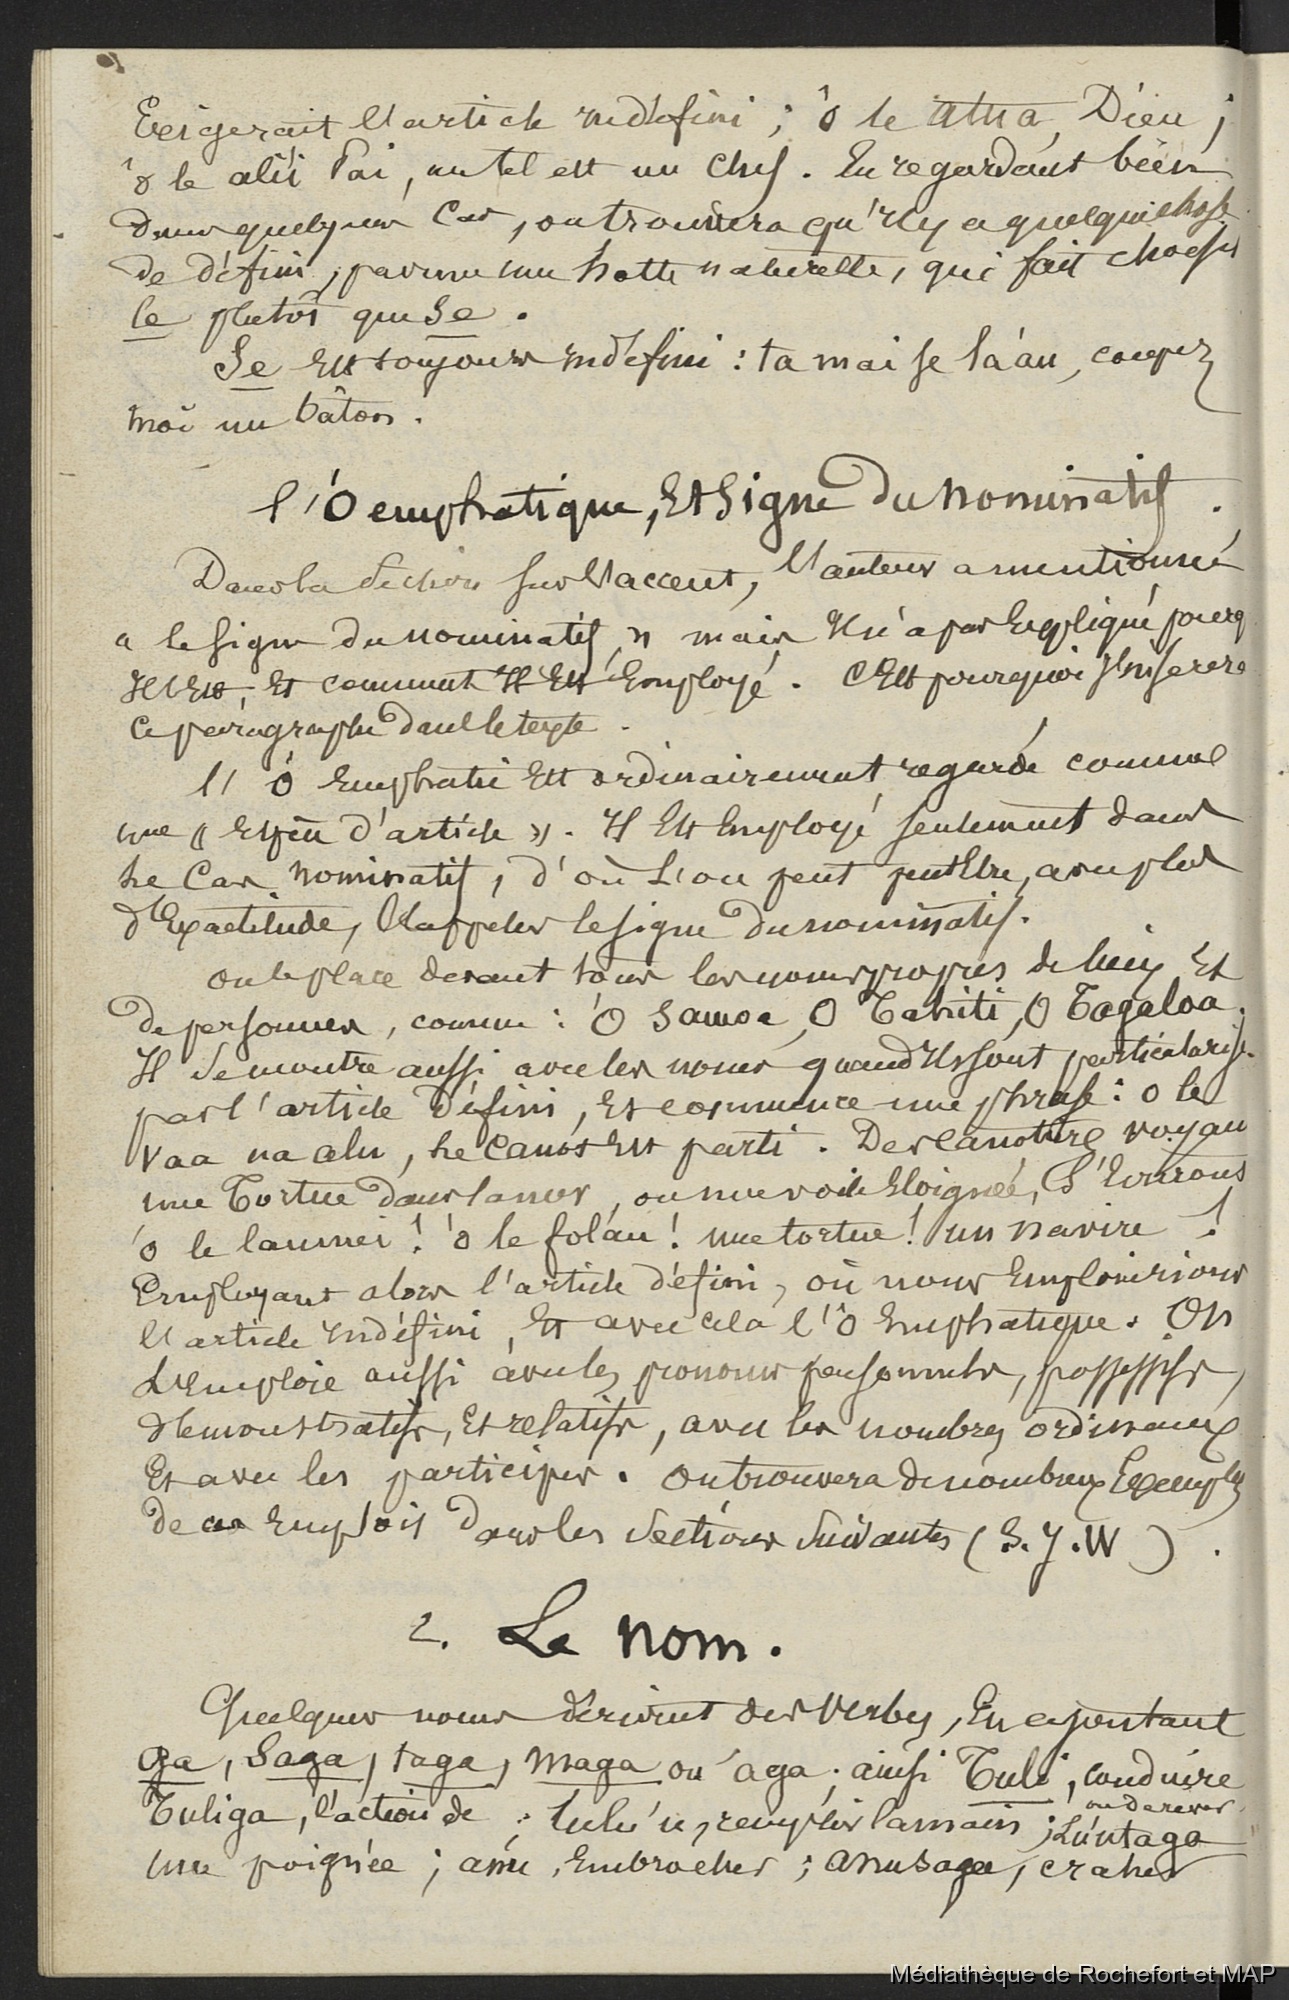 Exigerait l'article indéfini ; ô le atua, Dieu ;
ô le alii Pai, un tel est un chef. En regardant bien
dans quelques cas, on trouvera qu'il y a quelque chose
de défini, parmi une natte naturelle, qui fait choisir
le plutôt que se.
Se Est toujours indéfini : ta mai se lá'au, coupez
moi un bâton.
l'O emphatique, Et Signe du nominatif.
Dans la Section sur l'accent, l'auteur a mentionné
« le signe du nominatif, » mais Il n'a pas Expliqué pourq
Il l'Est, Et comment Il Est Employé. C'Est pourquoi j'inserere
ce paragraphe dans le texte.
l' ó Emphatic Est ordinairement regardé comme
une « Espèce d'article ». Il Est Employé seulement dans
le Cas nominatif, d'où L'on peut peut Etre, avec plus
d'Exactitude, l'appeler le signe du nominatif.
on le place devant tous les noms propres de lieux Et
de personnes, comme : O Samoa, O Tahiti, O Tagaloa.
Il Se montre aussi avec les noms quand Ils sont particularisé
par l'article défini, Et commence une phrase : o le
vaa na alu, le canot Est parti. Des canotiers voyan
une Tortue dans la mer, ou une voile Eloignée, S'Ecrirons
ó le laumei ! ó le folau ! une tortue ! un navire !
Employant alors l'article défini, où nous Emploierions
l'article indéfini, Et avec cela l'ô Emphatique. On
L'Emploie aussi avec les pronoms personnels, possessifs,
démonstratifs, Et relatifs, avec les nombres ordinaux
Et avec les participes. on trouvera de nombreux Exemples
de ces Emplois dans les Sections suivantes (S. J. W).
2. Le nom.
Quelques noms dérivent des Verbes, En ajoutant
ga, Saga, taga, maga ou 'aga ; ainsi Tuli, conduire
Tuliga, l'action de ; lulu'u, remplir la main ; Lu'utaga
ou d'arroser
une poignée ; anu, Embrocher ; anusaga, cracher
Médiathèque de Rochefort et MAP